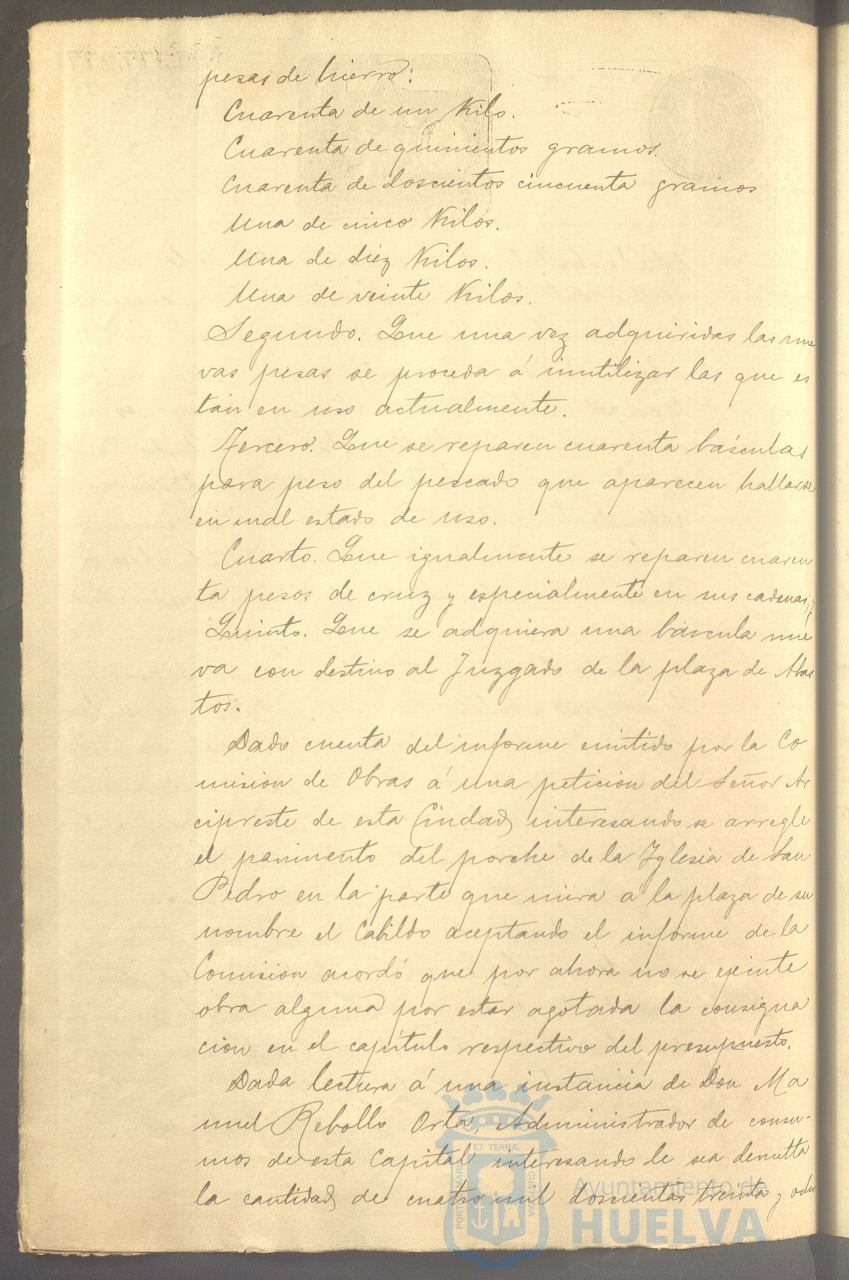 pesas de hierro:
Cuarenta de un Kilo.
Cuarenta de quinientos gramos.
Cuarenta de doscientos cincuenta gramos
Una de cinco Kilos.
Una de diez Kilos.
Una de veinte Kilos.
Segundo. Que una vez adquiridas las nue
vas pesas se proceda á inutilizar las que es
tán en uso actualmente.
Tercero. Que se reparen cuarenta básculas
para peso del pescado que aparecen hallarse
en mal estado de uso.
Cuarto. Que igualmente se reparen cuaren
ta pesos de cruz y especialmente en sus cadenas, y
Quinto. Que se adquiera una báscula nue
va con destino al Juzgado de la plaza de Abas
tos.
Dado cuenta del informe emitido por la Co
mision de Obras á una peticion del Señor Ar
cipreste de esta Ciudad, interesando se arregle
el pavimento del porche de la Iglesia de San
Pedro en la parte que mira a la plaza de su
nombre el Cabildo aceptando el informe de la
Comision acordó que por ahora no se ejecute
obra alguna por estar agotada la consigna
cion en el capítulo respectivo del presupuesto.
Dada lectura á una instancia de Don Ma
nuel Rebollo Orta, Administrador de consu-
mos de esta Capital interesando le sea devuelta
la cantidad de cuatro mil doscientas treinta y ocho
ET TERRÆ
PORTUS MARIS
CUSTODIA
Ayuntamiento de
HUELVA